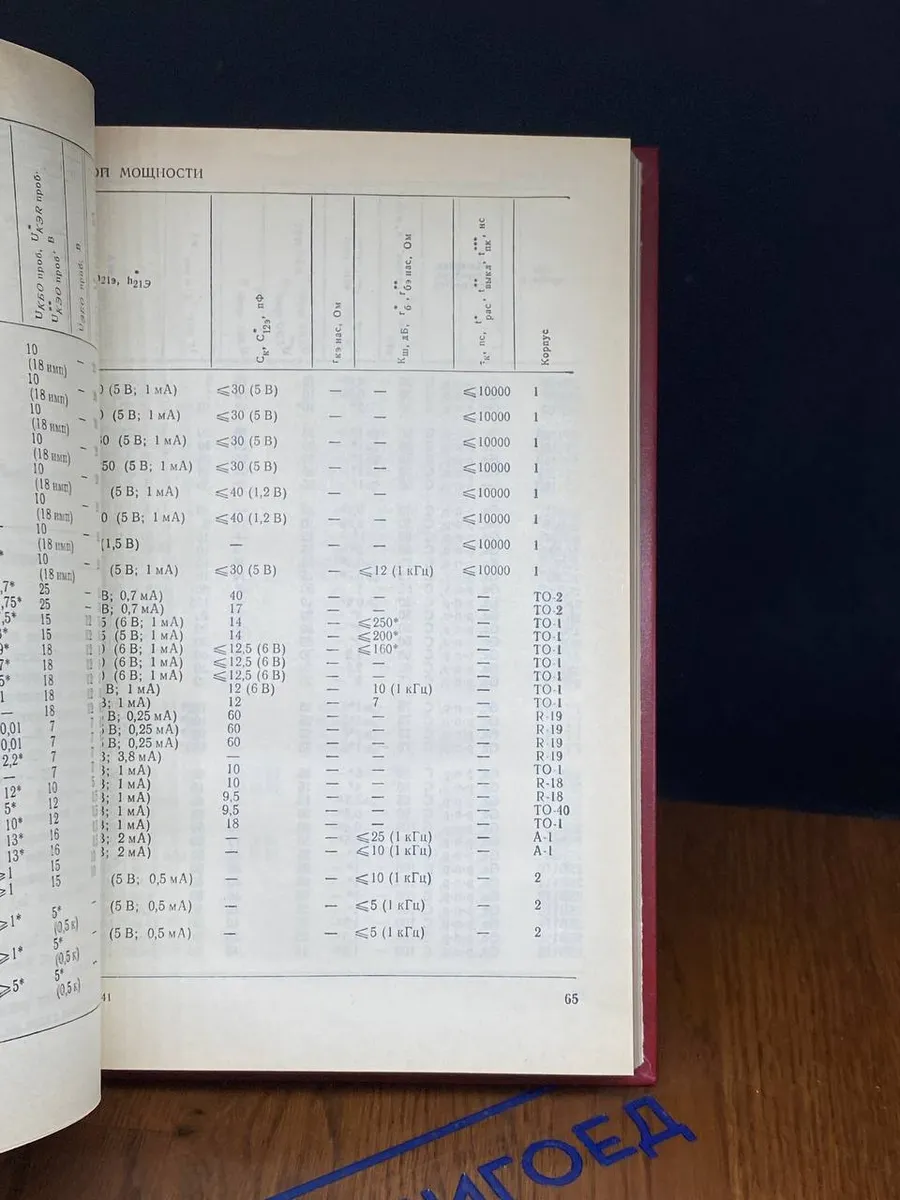 U КБО проб, U* КЭR проб,
U** КЭО проб, В
U ЭБО проб, В
10
(18 имп)
10
(18 имп)
10
(18 имп)
10
(18 имп)
10
(18 имп)
10
(18 имп)
10
(18 имп)
10
(18 имп)
,7* 25
,75* 25
,5* 15
15
18
18
5* 18
1 18
— 18
0,01 7
0,01 7
2,2* 7
— 7
12* 10
5* 12
10* 12
13* 16
13* 16
⩾1 15
⩾1 15
⩾1* 5*
(0,5 к)
⩾1* 5*
(0,5 к)
⩾5* 5*
(0,5 к)
ОП МОЩНОСТИ
h21э, h*21Э
Cк, C*12э, пФ
rкэ нас, Ом
Kш, дБ, r*б, r**бэ нас, Ом
τк, пс, t*рас, t**выкл, t***пк, нс
Корпус
0 (5 В; 1 мА) ⩽30 (5 В) — — ⩽10000 1
(5 В; 1 мА) ⩽30 (5 В) — — ⩽10000 1
30 (5 В; 1 мА) ⩽30 (5 В) — — ⩽10000 1
50 (5 В; 1 мА) ⩽30 (5 В) — — ⩽10000 1
(5 В; 1 мА) ⩽40 (1,2 В) — — ⩽10000 1
0 (5 В; 1 мА) ⩽40 (1,2 В) — — ⩽10000 1
(1,5 В) — — — ⩽10000 1
(5 В; 1 мА) ⩽30 (5 В) — ⩽12 (1 кГц) ⩽10000 1
В; 0,7 мА) 40 — — — ТО-2
В; 0,7 мА) 17 — — — ТО-2
5 (6 В; 1 мА) 14 — ⩽250* — ТО-1
5 (5 В; 1 мА) 14 — ⩽200* — ТО-1
(6 В; 1 мА) ⩽12,5 (6 В) — ⩽160* — ТО-1
(6 В; 1 мА) ⩽12,5 (6 В) — — — ТО-1
(6 В; 1 мА) ⩽12,5 (6 В) — — — ТО-1
В; 1 мА) 12 (6 В) — 10 (1 кГц) — ТО-1
В; 1 мА) 12 — 7 — ТО-1
В; 0,25 мА) 60 — — — R-19
В; 0,25 мА) 60 — — — R-19
В; 0,25 мА) 60 — — — R-19
В; 3,8 мА) — — — — R-19
В; 1 мА) 10 — — — ТО-1
В; 1 мА) 10 — — — R-18
В; 1 мА) 9,5 — — — R-18
В; 1 мА) 9,5 — — — ТО-40
В; 1 мА) 18 — — — ТО-1
В; 2 мА) — — ⩽25 (1 кГц) — А-1
В; 2 мА) — — ⩽10 (1 кГц) — А-1
(5 В; 0,5 мА) — — ⩽10 (1 кГц) — 2
(5 В; 0,5 мА) — — ⩽5 (1 кГц) — 2
(5 В; 0,5 мА) — — ⩽5 (1 кГц) — 2
41 65
НИГОЕД